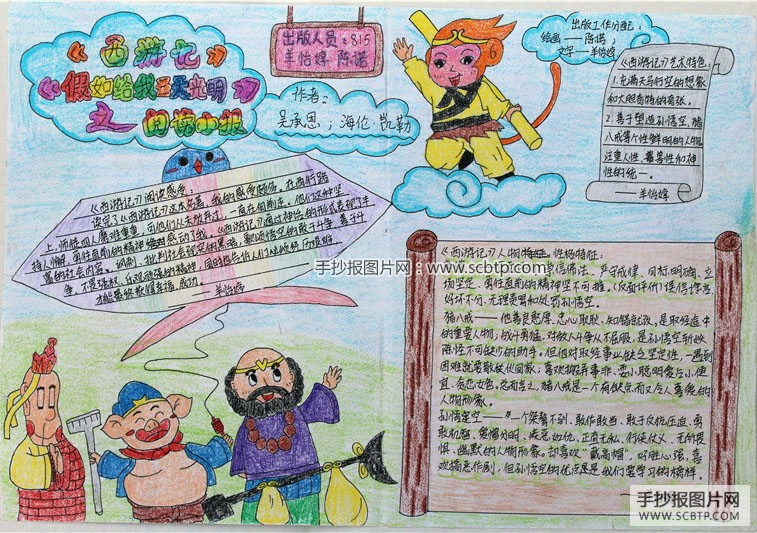 《西游记》
《假如给我三天光明》
之 阅读小报
出版人员：815
羊怡婷 陈诺
作者：
吴承恩；海伦·凯勒
出版工作分配：
绘画——陈诺；
文字——羊怡婷
《西游记》艺术特色：
1.充满天马行空的想象
和大胆奇特的夸张。
2.善于塑造孙悟空、猪
八戒等个性鲜明的人物
注重人性、魔善性和神
性的统一。
——羊怡婷
《西游记》阅读感受：
读完了《西游记》这本名著，我的感受颇多。在西行路
上，师徒四人磨难重重，可他们从未放弃过，一直在向前走。他们这种坚
持人懈、勇往直前的精神
感动了我。《西游记》通过神话的形式表现了丰
富的社会内容。讽刺、批判社会
的黑暗，
斗争、善于斗
争、不畏强权、乐观顽强的精神，同时也告诉人们
才能最终取得幸福、成功。
——羊怡婷
《西游记》人物性格特征：
崇信佛法、严守戒律、目标明确、立
场坚定、勇往直前的精神坚不可摧。（反面评价）
好坏不分、无理责骂和处罚孙悟空。
猪八戒——他善良憨厚、忠心耿耿、知错就改，是取经途中
的重要人物；战斗勇猛，对敌人斗争从不屈服，是孙悟空斩妖
除怪不可缺少的助手。但他对取经事业缺乏坚定性，一遇到
困难就要散伙回家；喜欢搬弄事非、耍小聪明爱占小便
宜、贪恋女色。总而言之，猪八戒是一个有缺点而又令人喜爱的
人物形象。
孙悟空——一个桀骜不驯、敢作敢当、敢于反抗压迫、勇
敢机智、爱憎分明、疾恶如仇、正直无私、行侠仗义、无所畏
惧、幽默的人物形象，却喜欢“戴高帽”、好胜心强，喜
欢搞恶作剧，但孙悟空的优点是是我们要学习的榜样。
手抄报图片网：www.scbtp.com
手抄报图片网
WWW.SCBTP.COM